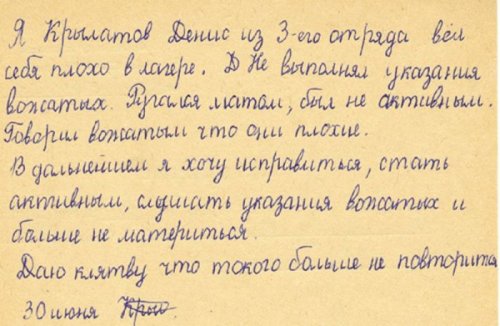 Я Крылатов Денис из 3-его отряда вёл
себя плохо в лагере. Д Не выполнял указания
вожатых. Ругался матом, был не активным.
Говорил вожатым что они плохие.
В дальнейшем я хочу исправиться, стать
активным, слушать указания вожатых и
больше не материться.
Даю клятву что токого больше не повторится
30 июня Крыл.